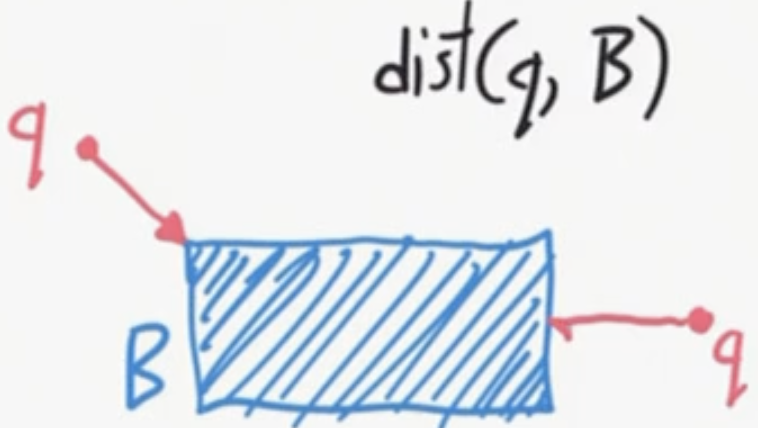 dist(q, B)
q
B
q